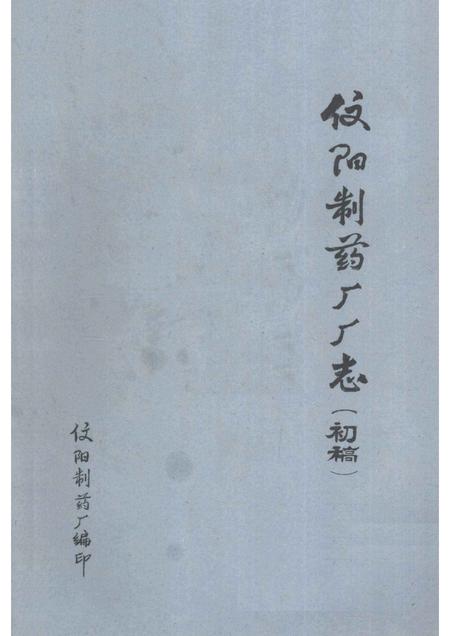 伩阳制药厂厂志（初稿）
伩阳制药厂编印